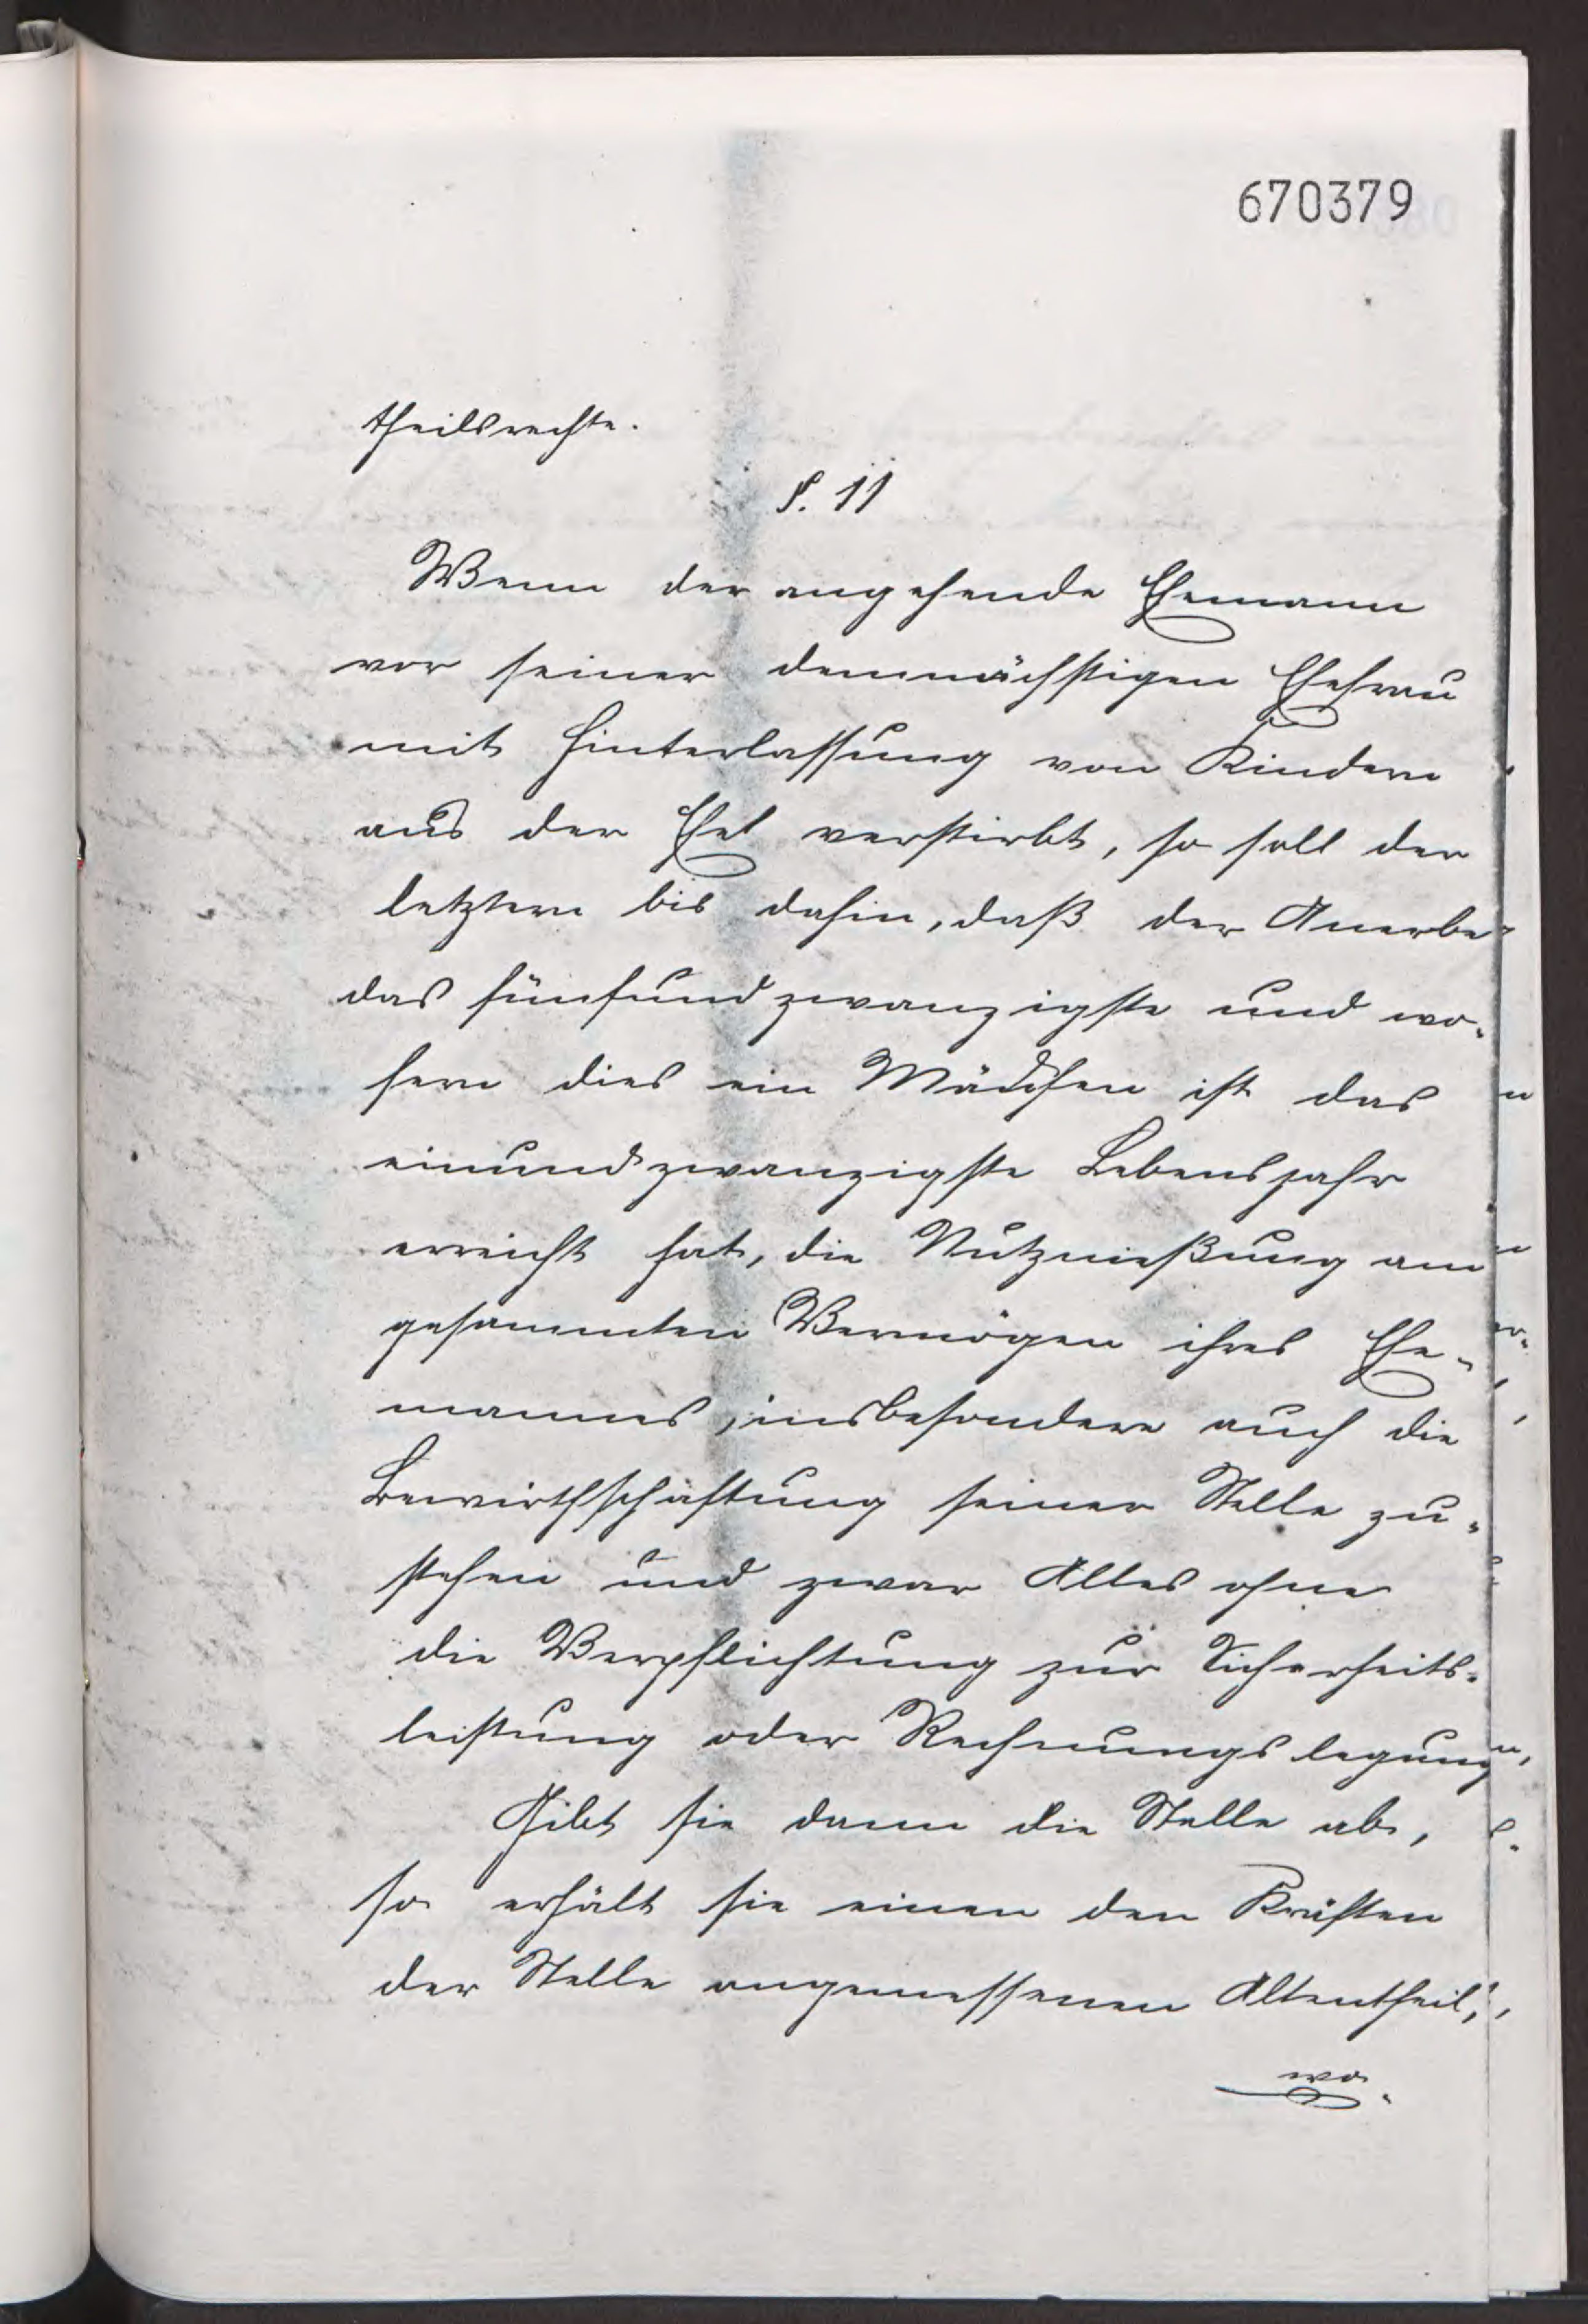 670379
theilsrechte.
§. 11
Wenn der angehende Ehemann
vor seiner demnächstigen Ehefrau
mit Hinterlassung von Kindern
aus der Ehe verstirbt, so soll der
letztern bis dahin, daß der Anerbe
das fünfundzwanzigste und wo-
fern dies ein Mädchen ist das
einundzwanzigste Lebensjahr
erreicht hat, die Nutznießung am
gesammten Vermögen ihres Ehe-
mannes, insbesondere auch die
Bewirthschaftung seiner Stelle zu-
stehen und zwar Alles ohne
die Verpflichtung zur Sicherheits-
leistung oder Rechnungslegung
Gibt sie dann die Stelle ab,
so erhält sie einen den Kräften
der Stelle angemessenen Altentheil,
wo-